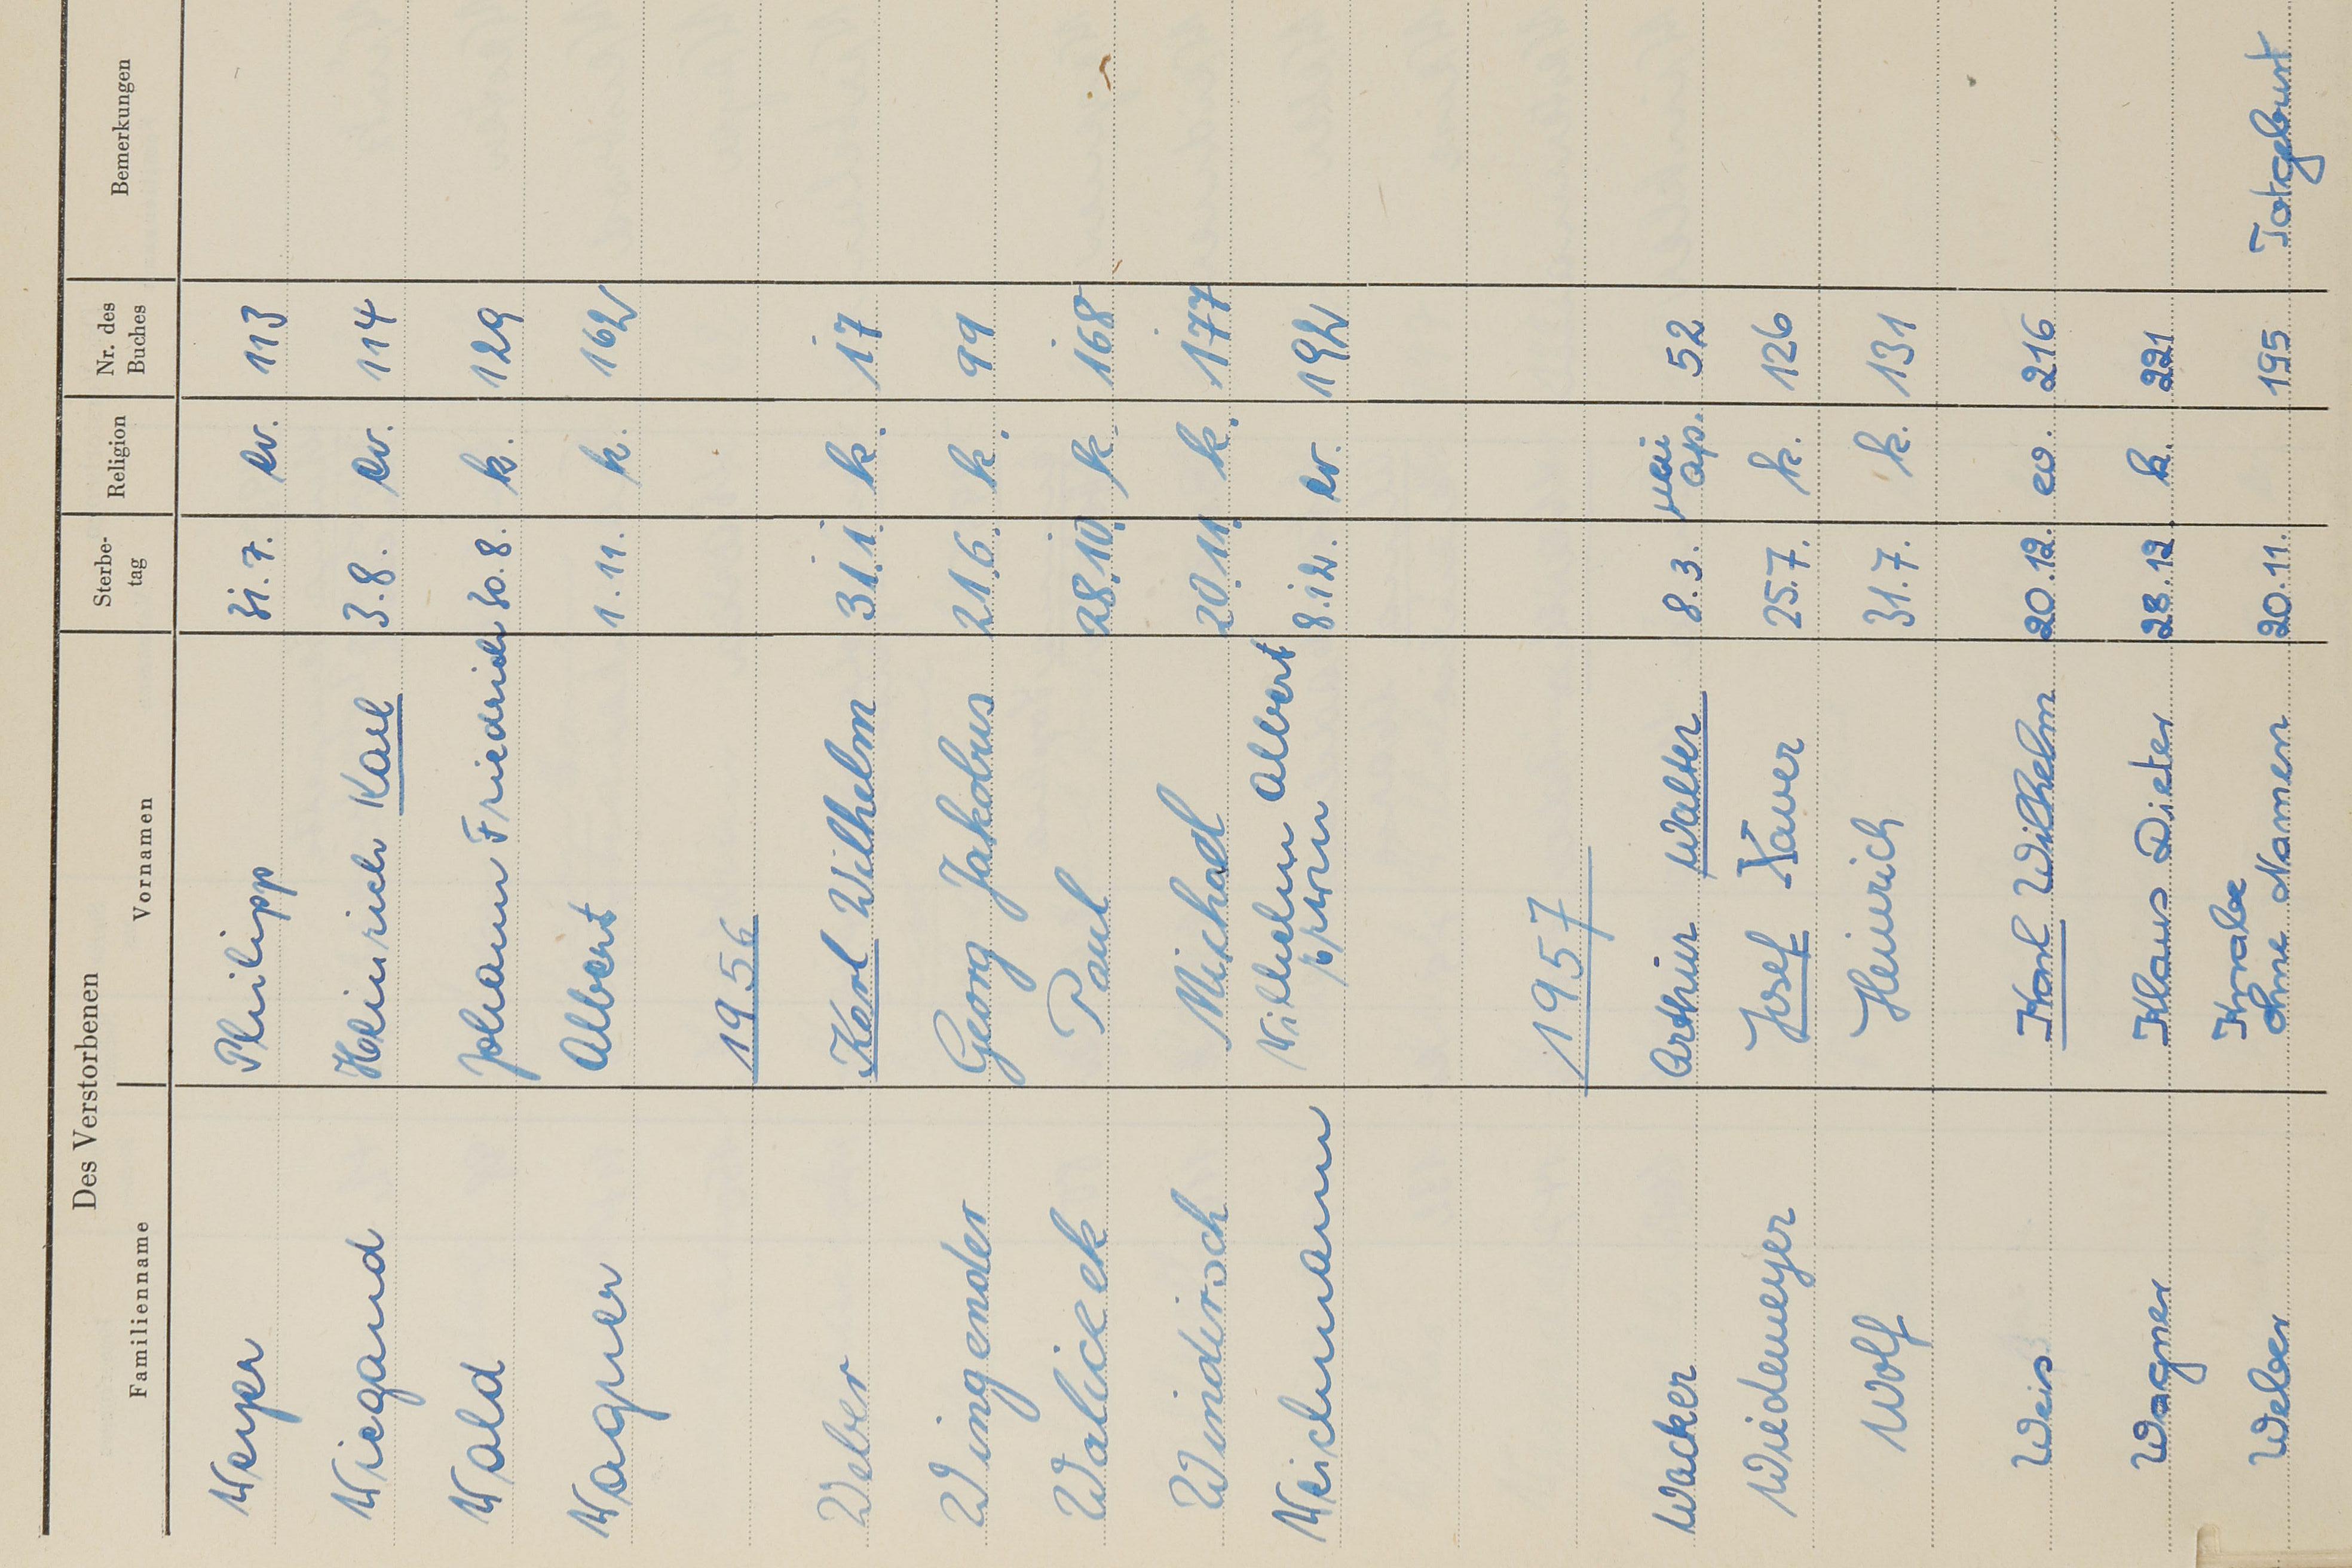 Des Verstorbenen
Familienname Vornamen Sterbe-tag Religion Nr. des Buches Bemerkungen
Weyer Philipp 31.7. ev. 113
Wiegand Heinrich Karl 3.8. ev. 114
Wald Johann Friedrich 30.8. k. 129
Wagner Albert 1.11. k. 162
1956
Weber Karl Wilhelm 31.1. k. 17
Wingender Georg Jakobus 21.6. k. 99
Walicek Paul 28.10. k. 168
Windirsch Michael 20.11. k. 177
Wilhelm Albert
Weichmann Erwin 8.12. ev. 192
1957
Wacker Arthur Walter 8.3. ap. 52
Wiedemeyer Josef Xaver 25.7. k. 126
Wolf Heinrich 31.7. k. 131
Weis Karl Wilhelm 20.12. ev. 216
Wagner Klaus Dieter 28.12. k. 221
Knabe
Weber ohne Namen 20.11. 195 Totgeburt